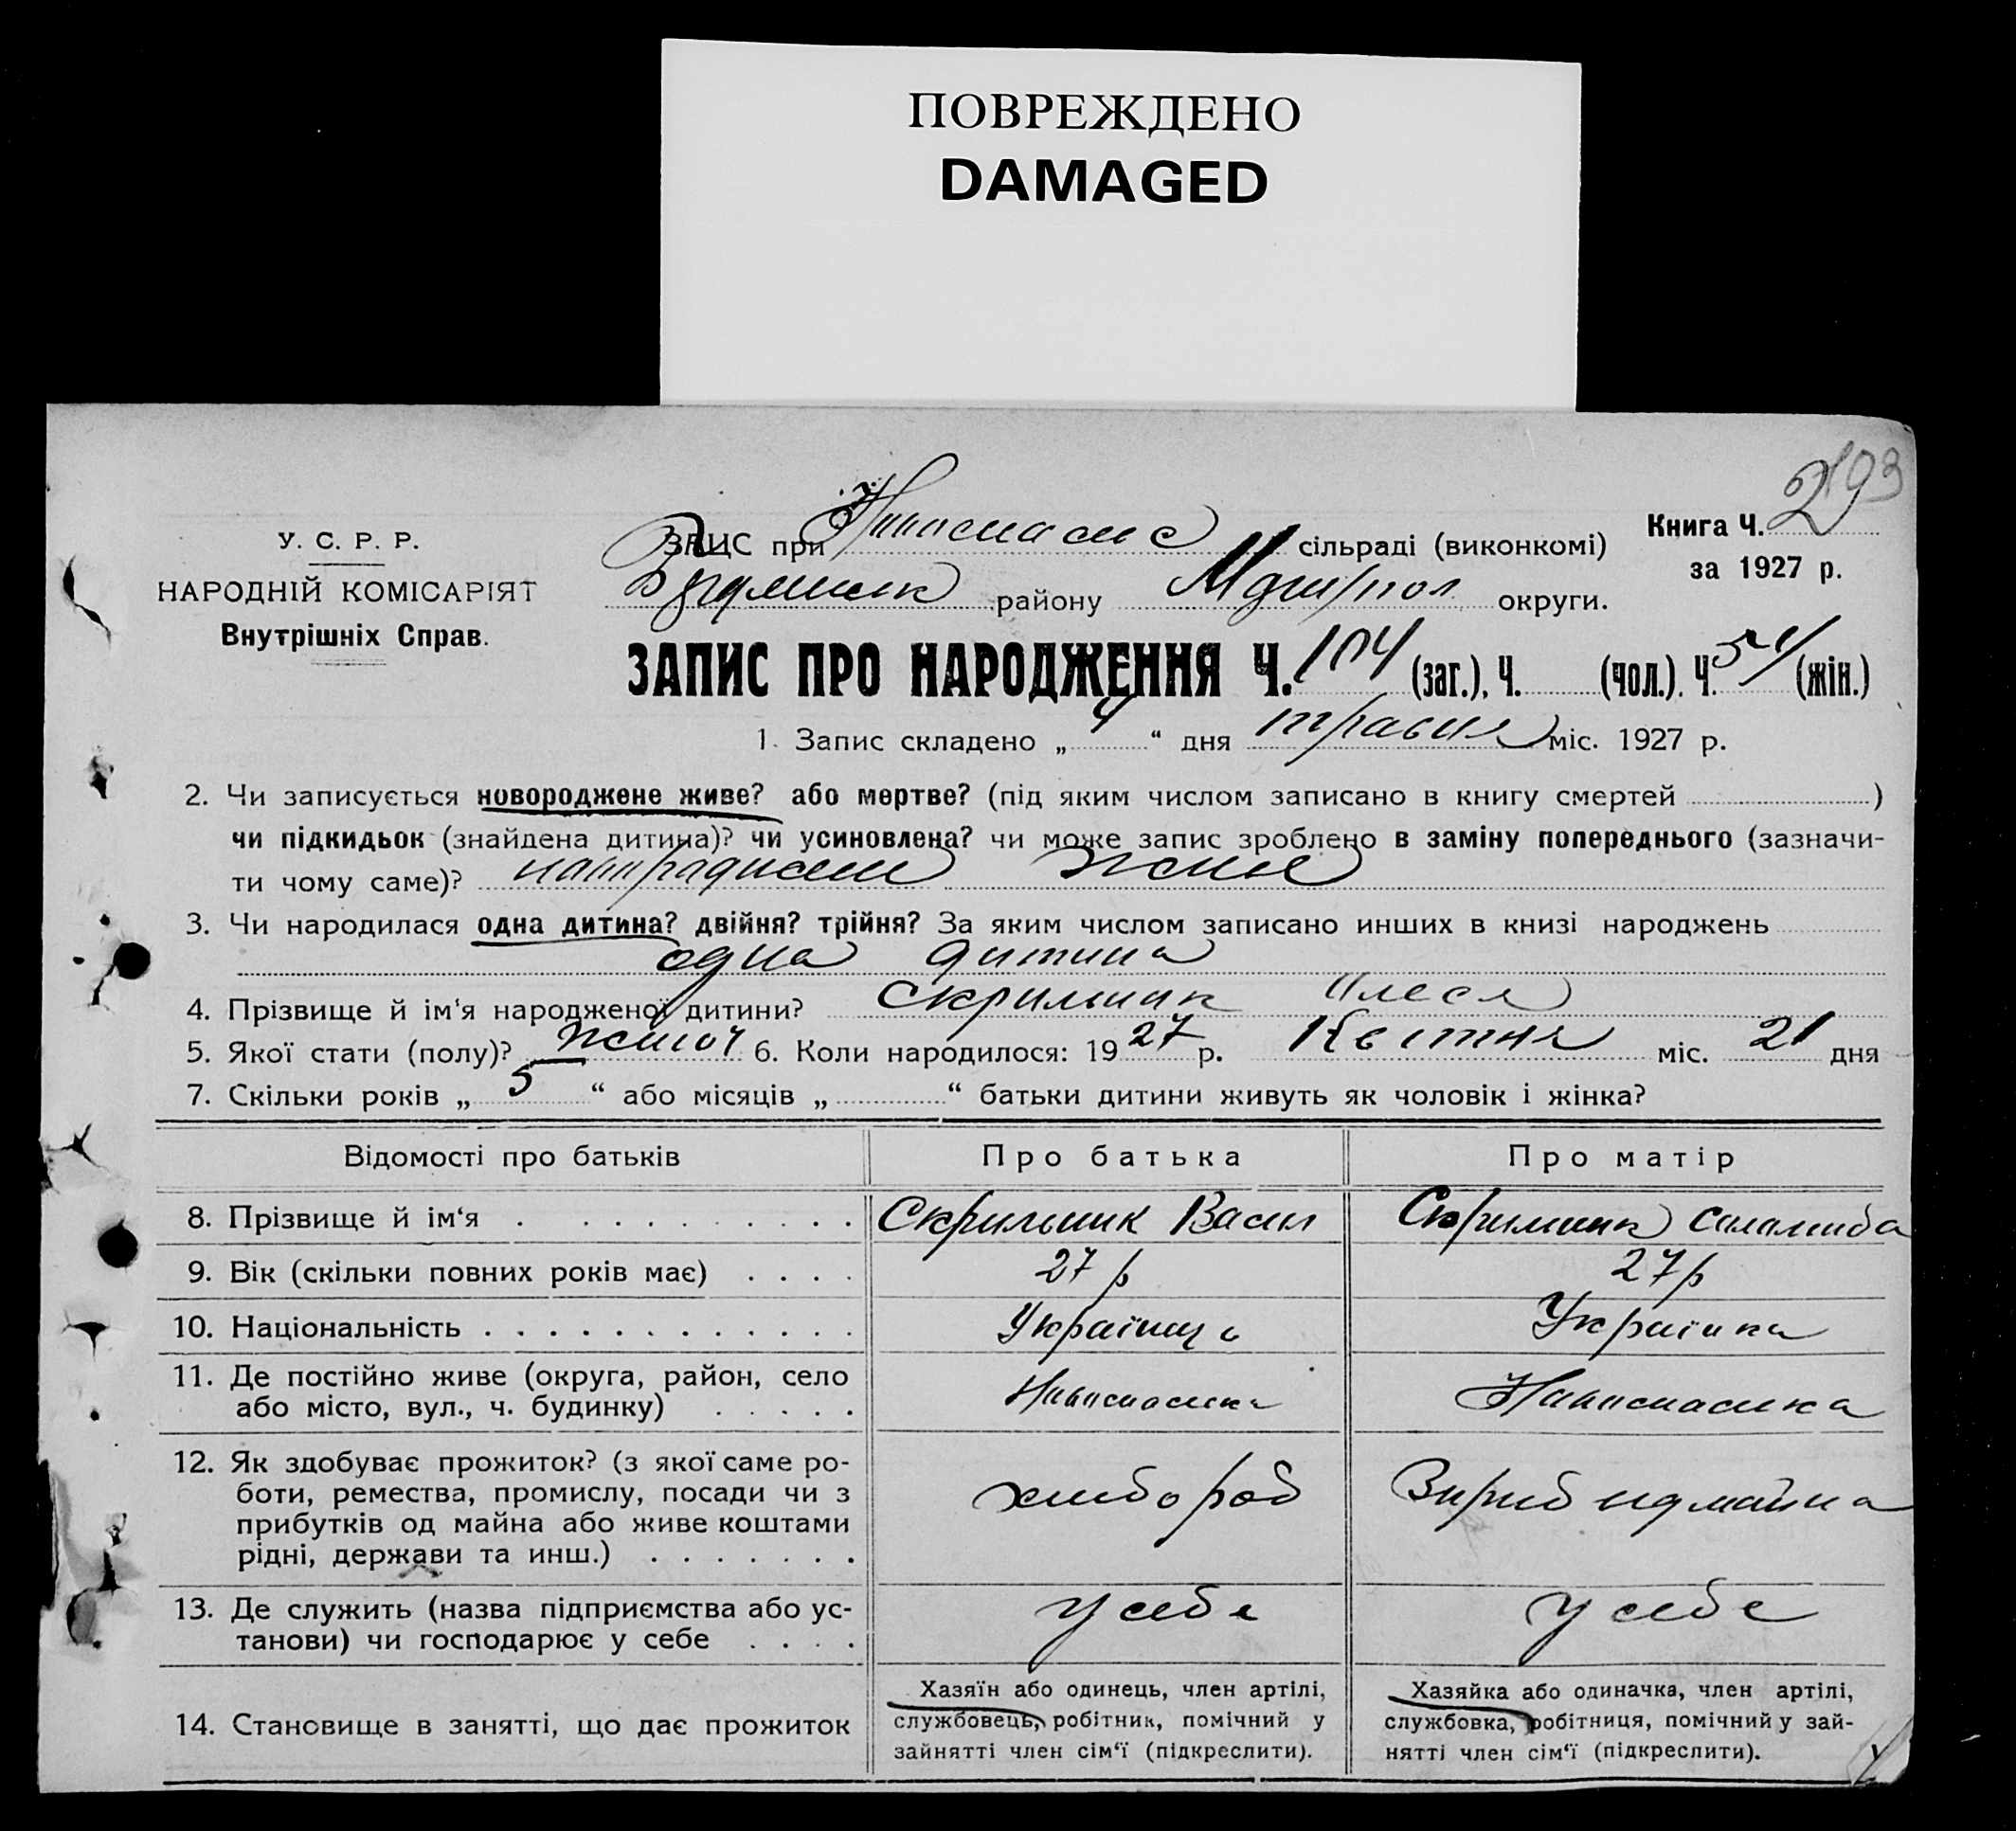 ПОВРЕЖДЕНО
DAMAGED
193
У. С. Р. Р.
НАРОДНІЙ КОМІСАРІЯТ
Внутрішніх Справ.
ЗАЦС при сільраді (виконкомі)
району округи.
Книга Ч. 2
за 1927 р.
ЗАПИС ПРО НАРОДЖЕННЯ Ч. 104 (заг.), Ч. (чол.). Ч. 54 (жін.)
1. Запис складено „ 4 “ дня травня міс. 1927 р.
2. Чи записується новороджене живе? або мертве? (під яким числом записано в книгу смертей )
чи підкидьок (знайдена дитина)? чи усиновлена? чи може запис зроблено в заміну попереднього (зазначи-
ти чому саме)?
3. Чи народилася одна дитина? двійня? трійня? За яким числом записано инших в книзі народжень
одна дитина
4. Прізвище й ім‘я народженої дитини? Скрильник Олеся
5. Якої стати (полу)? жіноч 6. Коли народилося: 19 27 р. Квітня міс. 21 дня
7. Скільки років „ 5 “ або місяців „ “ батьки дитини живуть як чоловік і жінка?
Відомості про батьків Про батька Про матір
8. Прізвище й ім‘я Скрильник Васил Скрильник
9. Вік (скільки повних років має) 27 р 27 р
10. Національність Українець Українка
11. Де постійно живе (округа, район, село
або місто, вул., ч. будинку) Новоспасівка Новоспасівка
12. Як здобуває прожиток? (з якої саме ро-
боти, ремества, промислу, посади чи з
прибутків од майна або живе коштами
рідні, держави та инш.) хлібороб
13. Де служить (назва підприємства або ус-
танови) чи господарює у себе у себе у себе
14. Становище в занятті, що дає прожиток
Хазяїн або одинець, член артілі,
службовець, робітник, помічний у
зайнятті член сім‘ї (підкреслити).
Хазяйка або одиначка, член артілі,
службовка, робітниця, помічний у зай-
нятті член сім‘ї (підкреслити).